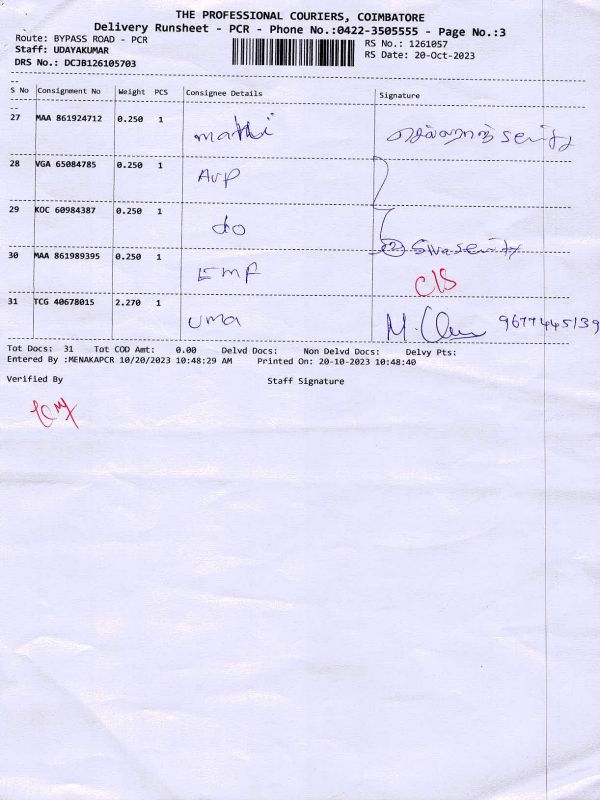 THE PROFESSIONAL COURIERS, COIMBATORE
Delivery Runsheet - PCR - Phone No.:0422-3505555 - Page No.:3
Route: BYPASS ROAD - PCR
RS No.: 1261057
Staff: UDAYAKUMAR
RS Date: 20-Oct-2023
DRS No.: DCJB126105703
S No Consignment No Weight PCS Consignee Details Signature
27 MAA 861924712 0.250 1 mathi
28 VGA 65084785 0.250 1 AVP
29 KOC 60984387 0.250 1 do
② Siva
30 MAA 861989395 0.250 1 EMF
31 TCG 40678015 2.270 1 uma 9677445139
Tot Docs: 31 Tot COD Amt: 0.00 Delvd Docs: Non Delvd Docs: Delvy Pts:
Entered By :MENAKAPCR 10/20/2023 10:48:29 AM Printed On: 20-10-2023 10:48:40
Verified By Staff Signature